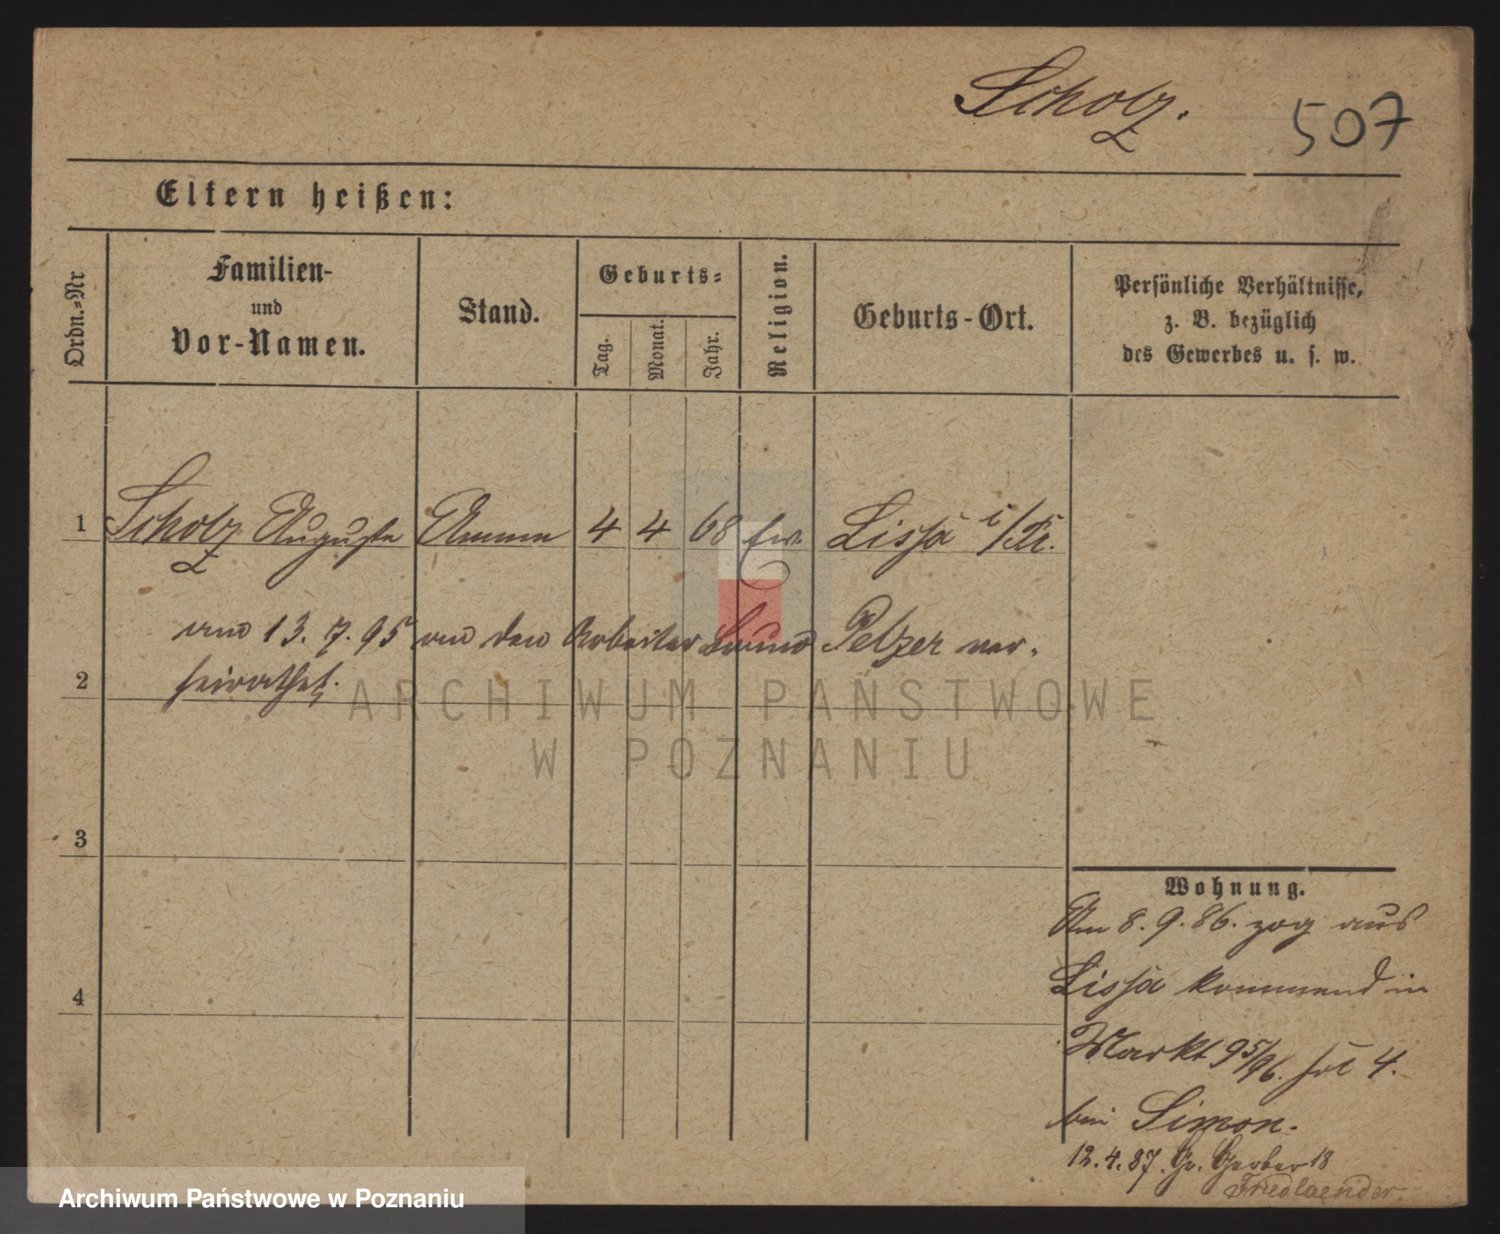 Scholz.
507
Eltern heißen:
Ordn.=Nr
Familien-
und
Vor-Namen.
Stand.
Geburts=
Tag.
Monat.
Jahr.
Religion.
Geburts-Ort.
Persönliche Verhältnisse,
z. B. bezüglich
des Gewerbes u. s. w.
1 Scholz Auguste Amme 4 4 68 Lissa i/Pr.
am 13. 7. 95 an den Arbeiter Pelzer ver-
2 heirathet.
ARCHIWUM PAŃSTWOWE
W POZNANIU
3
Wohnung.
Am 8. 9. 86. zog aus
4 Lissa kommend in
Markt 95/96. 4.
bei Simon.
12.4.87. Gr. Gerber 18
Friedlaender.
Archiwum Państwowe w Poznaniu